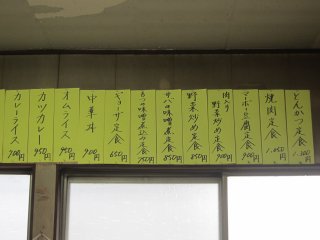 とんかつ定食 1,200円
焼肉定食 1,050円
マーボー豆腐定食 900円
肉入り
野菜炒め定食 900円
野菜炒め定食 850円
サバの味噌煮定食 850円
もつの味噌煮込み定食 750円
ギョーザ定食 650円
中華丼 900円
オムライス 950円
カツカレー 950円
カレーライス 700円